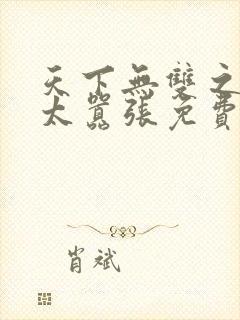 天下無雙之
太囂張免費
肖斌